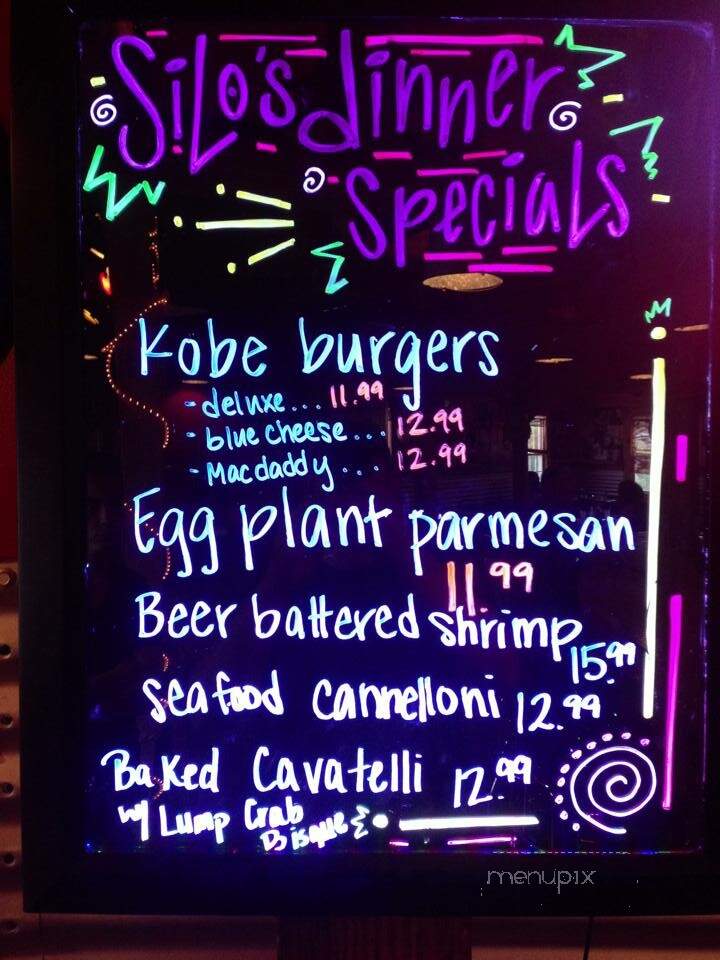 Silo's dinner
specials
Kobe burgers
- deluxe... 11.99
- blue cheese... 12.99
- Macdaddy... 12.99
Egg plant parmesan
11.99
Beer battered shrimp
15.99
seafood cannelloni 12.99
Baked Cavatelli 12.99
w/ Lump Crab
Bisque
menupix